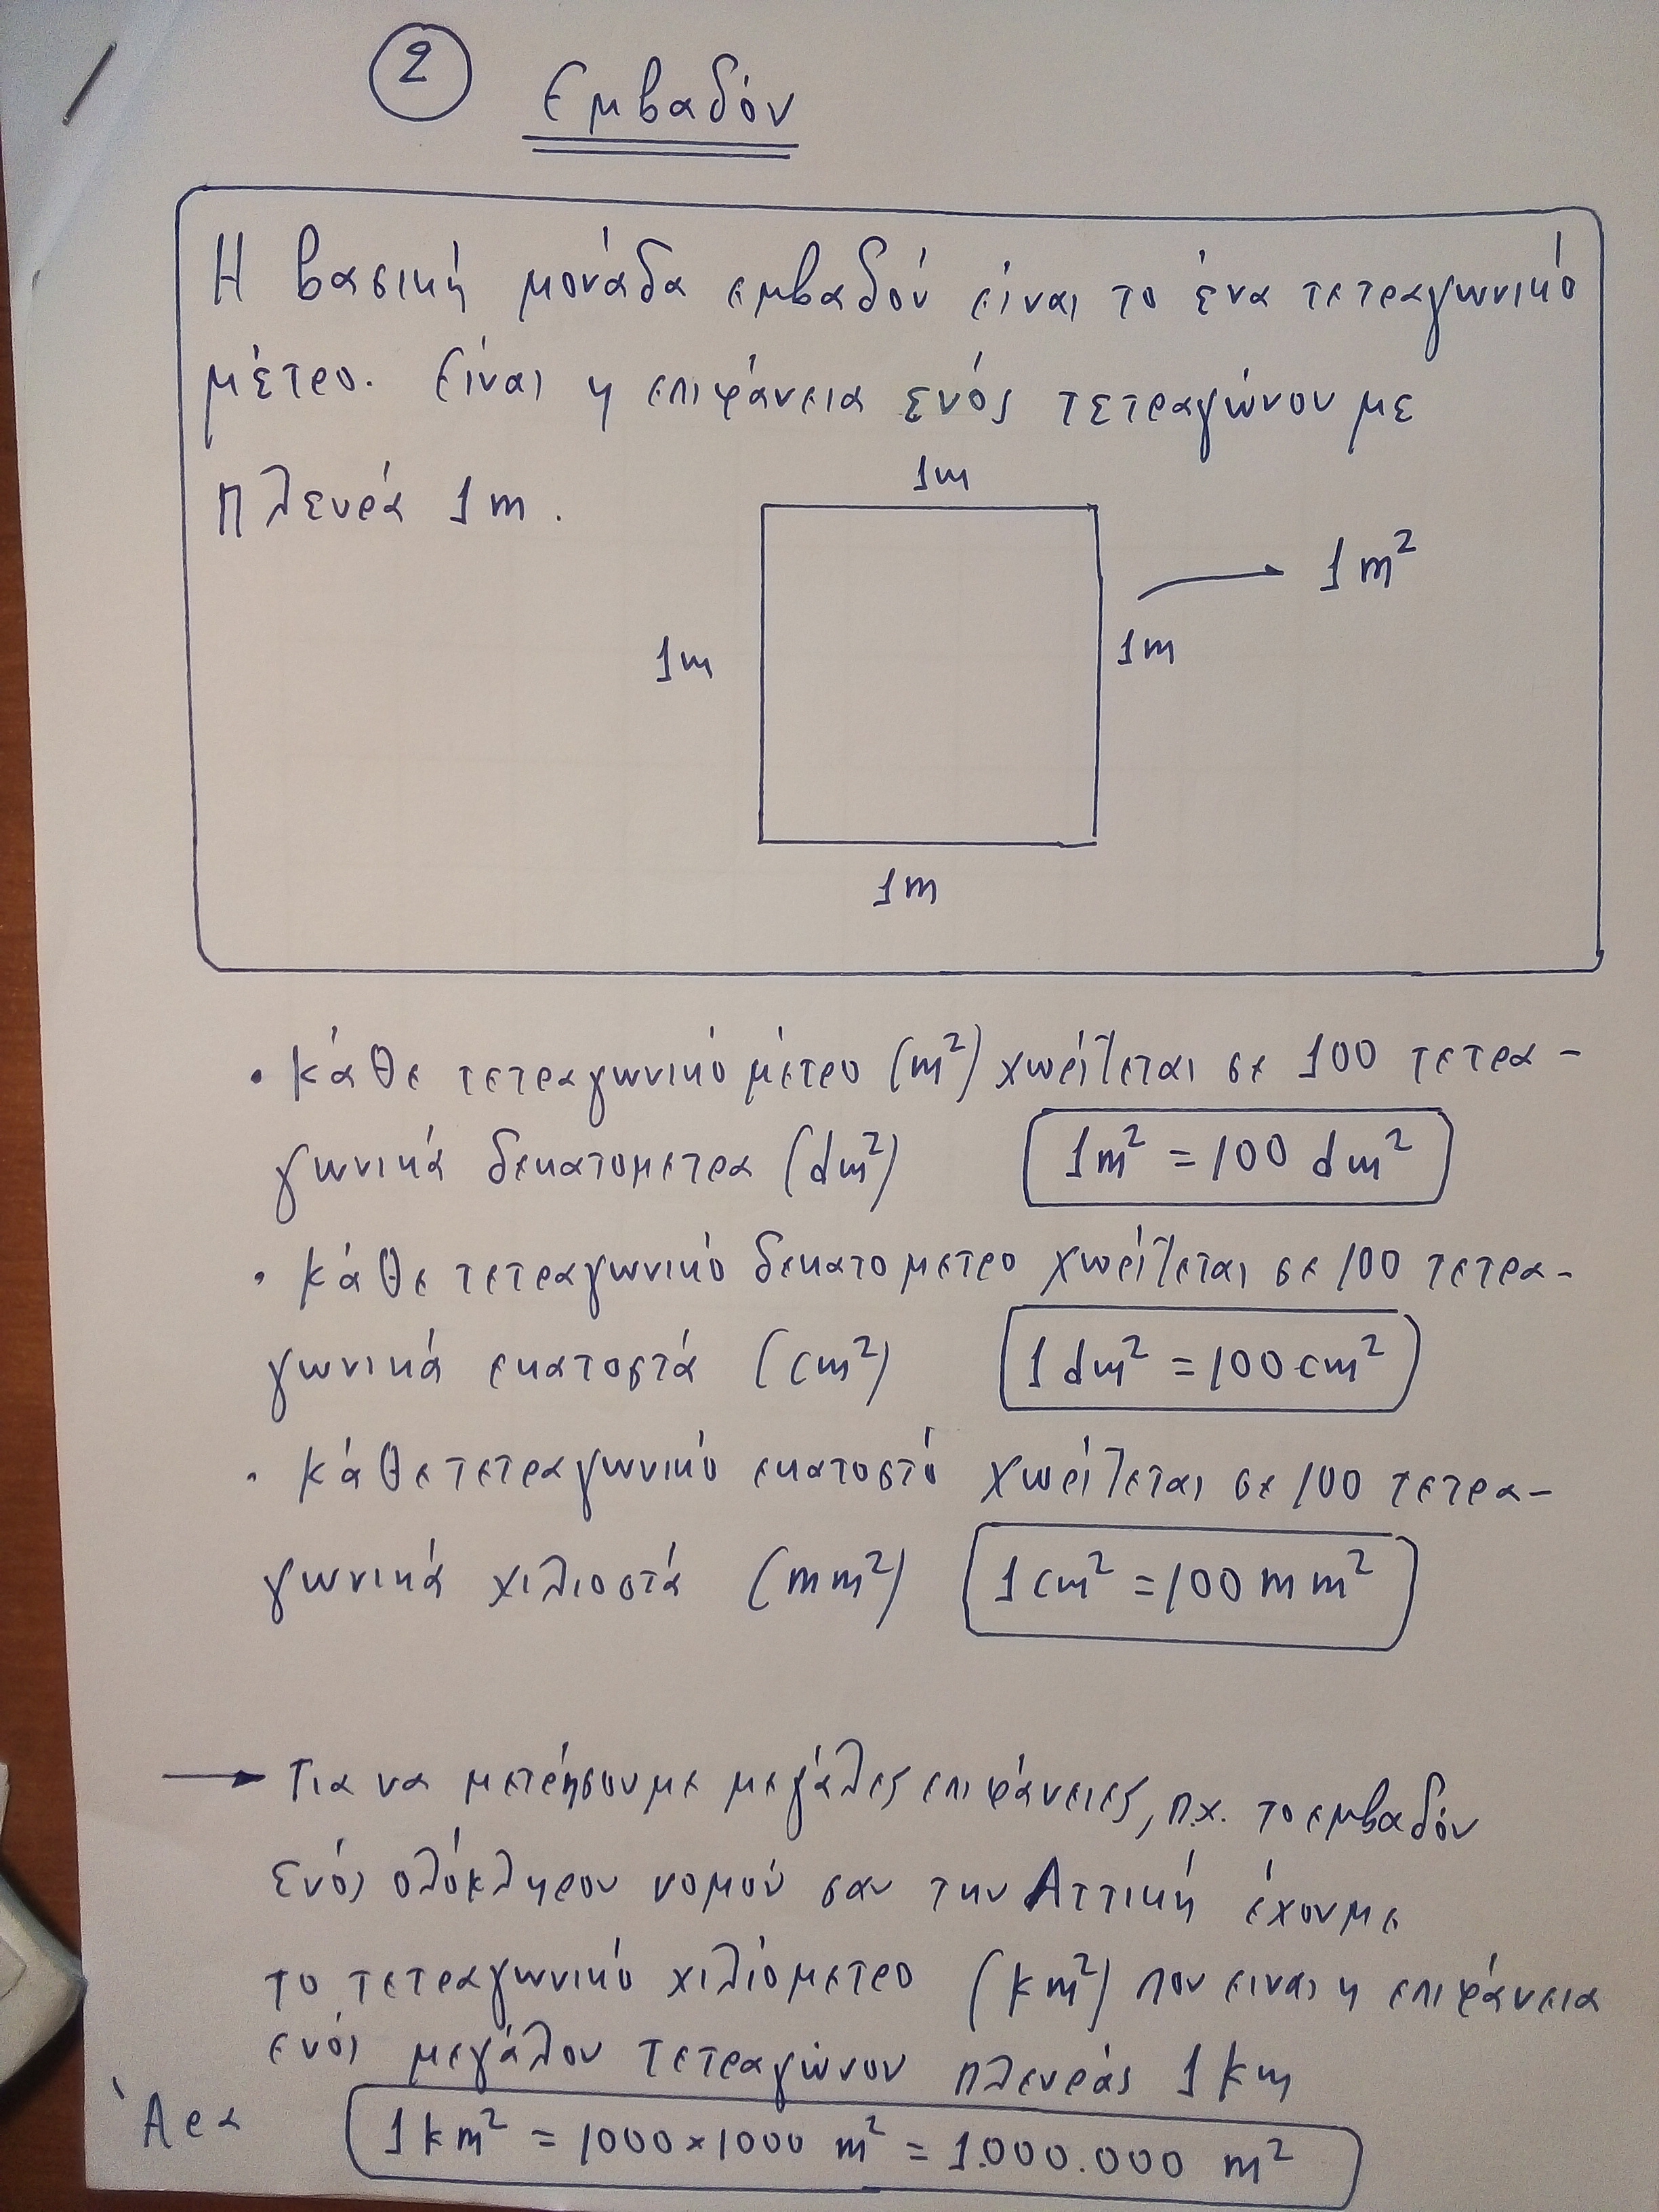 2
Εμβαδόν
Η βασική μονάδα εμβαδόν είναι το ένα τετραγωνικό
μέτρο. Είναι η επιφάνεια ενός τετραγώνου με
πλευρά 1m.
1m
1m²
1m
1m
1m
• Κάθε τετραγωνικό μέτρο (m²) χωρίζεται σε 100 τετρα-
γωνικά δεκατομετρα (dm²) 1m² = 100 dm²
• Κάθε τετραγωνικό δεκατομετρο χωρίζεται σε 100 τετρα-
γωνικά εκατοστά (cm²) 1 dm² = 100 cm²
• Κάθε τετραγωνικό εκατοστό χωρίζεται σε 100 τετρα-
γωνικά χιλιοστά (mm²) 1 cm² = 100 mm²
→ Για να μετρήσουμε μεγάλες επιφάνειες, π.χ. το εμβαδόν
ενός ολόκληρου νομού σαν την Αττική έχουμε
το τετραγωνικό χιλιόμετρο (km²) που ειναι η επιφάνεια
ενός μεγάλου τετραγώνου πλευράς 1 km
Άρα 1 km² = 1000 × 1000 m² = 1.000.000 m²